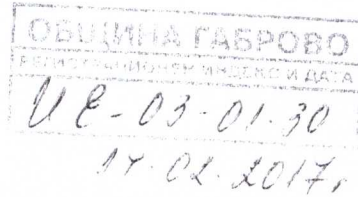 ОБЩИНА ГАБРОВО
РЕГИСТРАЦИОНЕН ИНДЕКС И ДАТА
ИЕ-03-01-30
14.02.2017г.